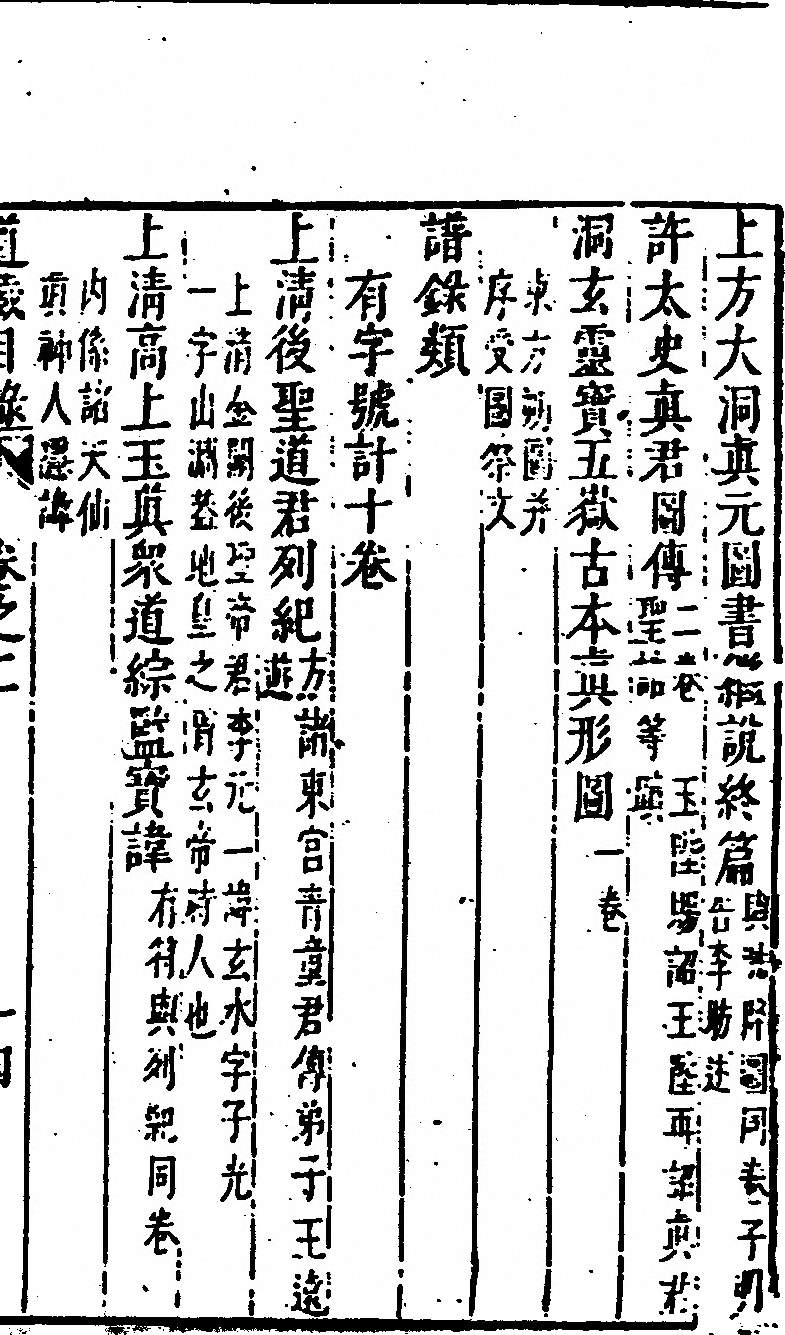 上方大洞真元圖書繼說終篇
同卷子明
李昉述
許太史真君圖傳
二卷 玉陛賜詔玉陛再詔真君
聖節等蹟
洞玄靈寶五嶽古本真形圖 一卷
東方朔圖并
序受圖祭文
譜錄類
有字號計十卷
上清後聖道君列紀
方諸東宮青童君傳弟子王遠
遊
上清金闕後聖帝君李元一諱玄水字子光
一字山淵葢地皇之胄玄帝時人也
上清高上玉真衆道綜監寶諱 有符與列紀同卷
內像諮天仙
真神人隱諱
道藏目錄 卷之二